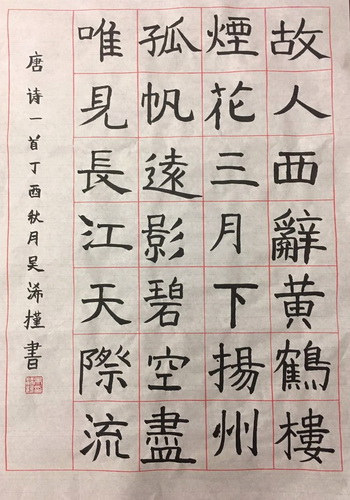 故人西辭黄鶴樓
煙花三月下揚州
孤帆遠影碧空盡
唯見長江天際流
唐诗一首丁酉秋月吴浠槿書